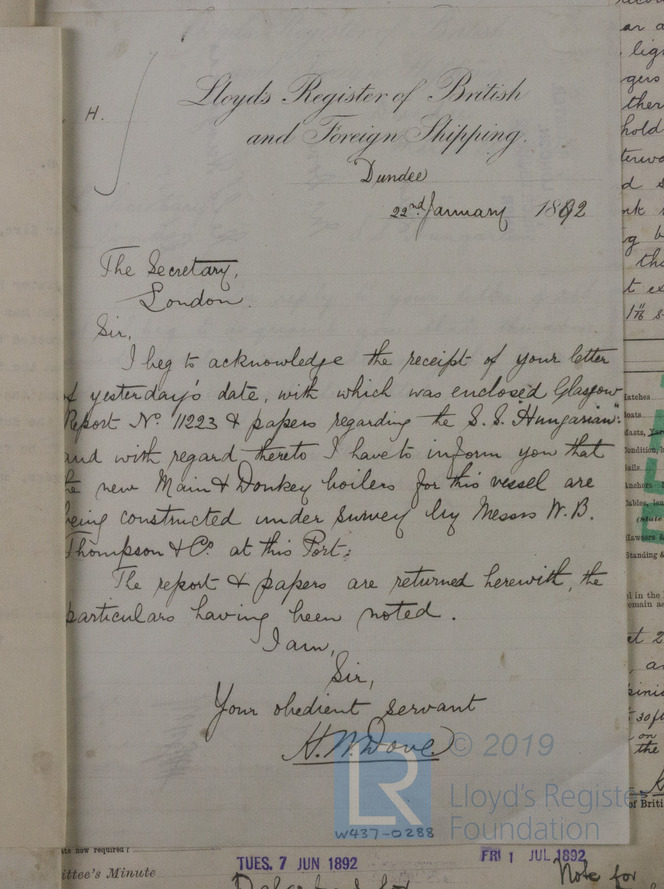 H.
Lloyds Register of British
and Foreign Shipping.
Dundee
22nd January 1892
The Secretary,
London.
Sir,
I beg to acknowledge the receipt of your letter
of yesterday's date, with which was enclosed Glasgow
Report No. 11223 & papers regarding the S.S. "Hungarian":
and with regard thereto I have to inform you that
the new Main & Donkey boilers for this vessel are
being constructed under survey by Messrs W. B.
Thompson & Co. at this Port:
The report & papers are returned herewith, the
particulars having been noted.
I am,
Sir,
Your obedient servant
H. W. Dove
© 2019
LR
Lloyd's Registe
Foundation
W437-0288
TUES. 7 JUN 1892
FRI 1 JUL 1892
ate now required?
ittee's Minute
Note for